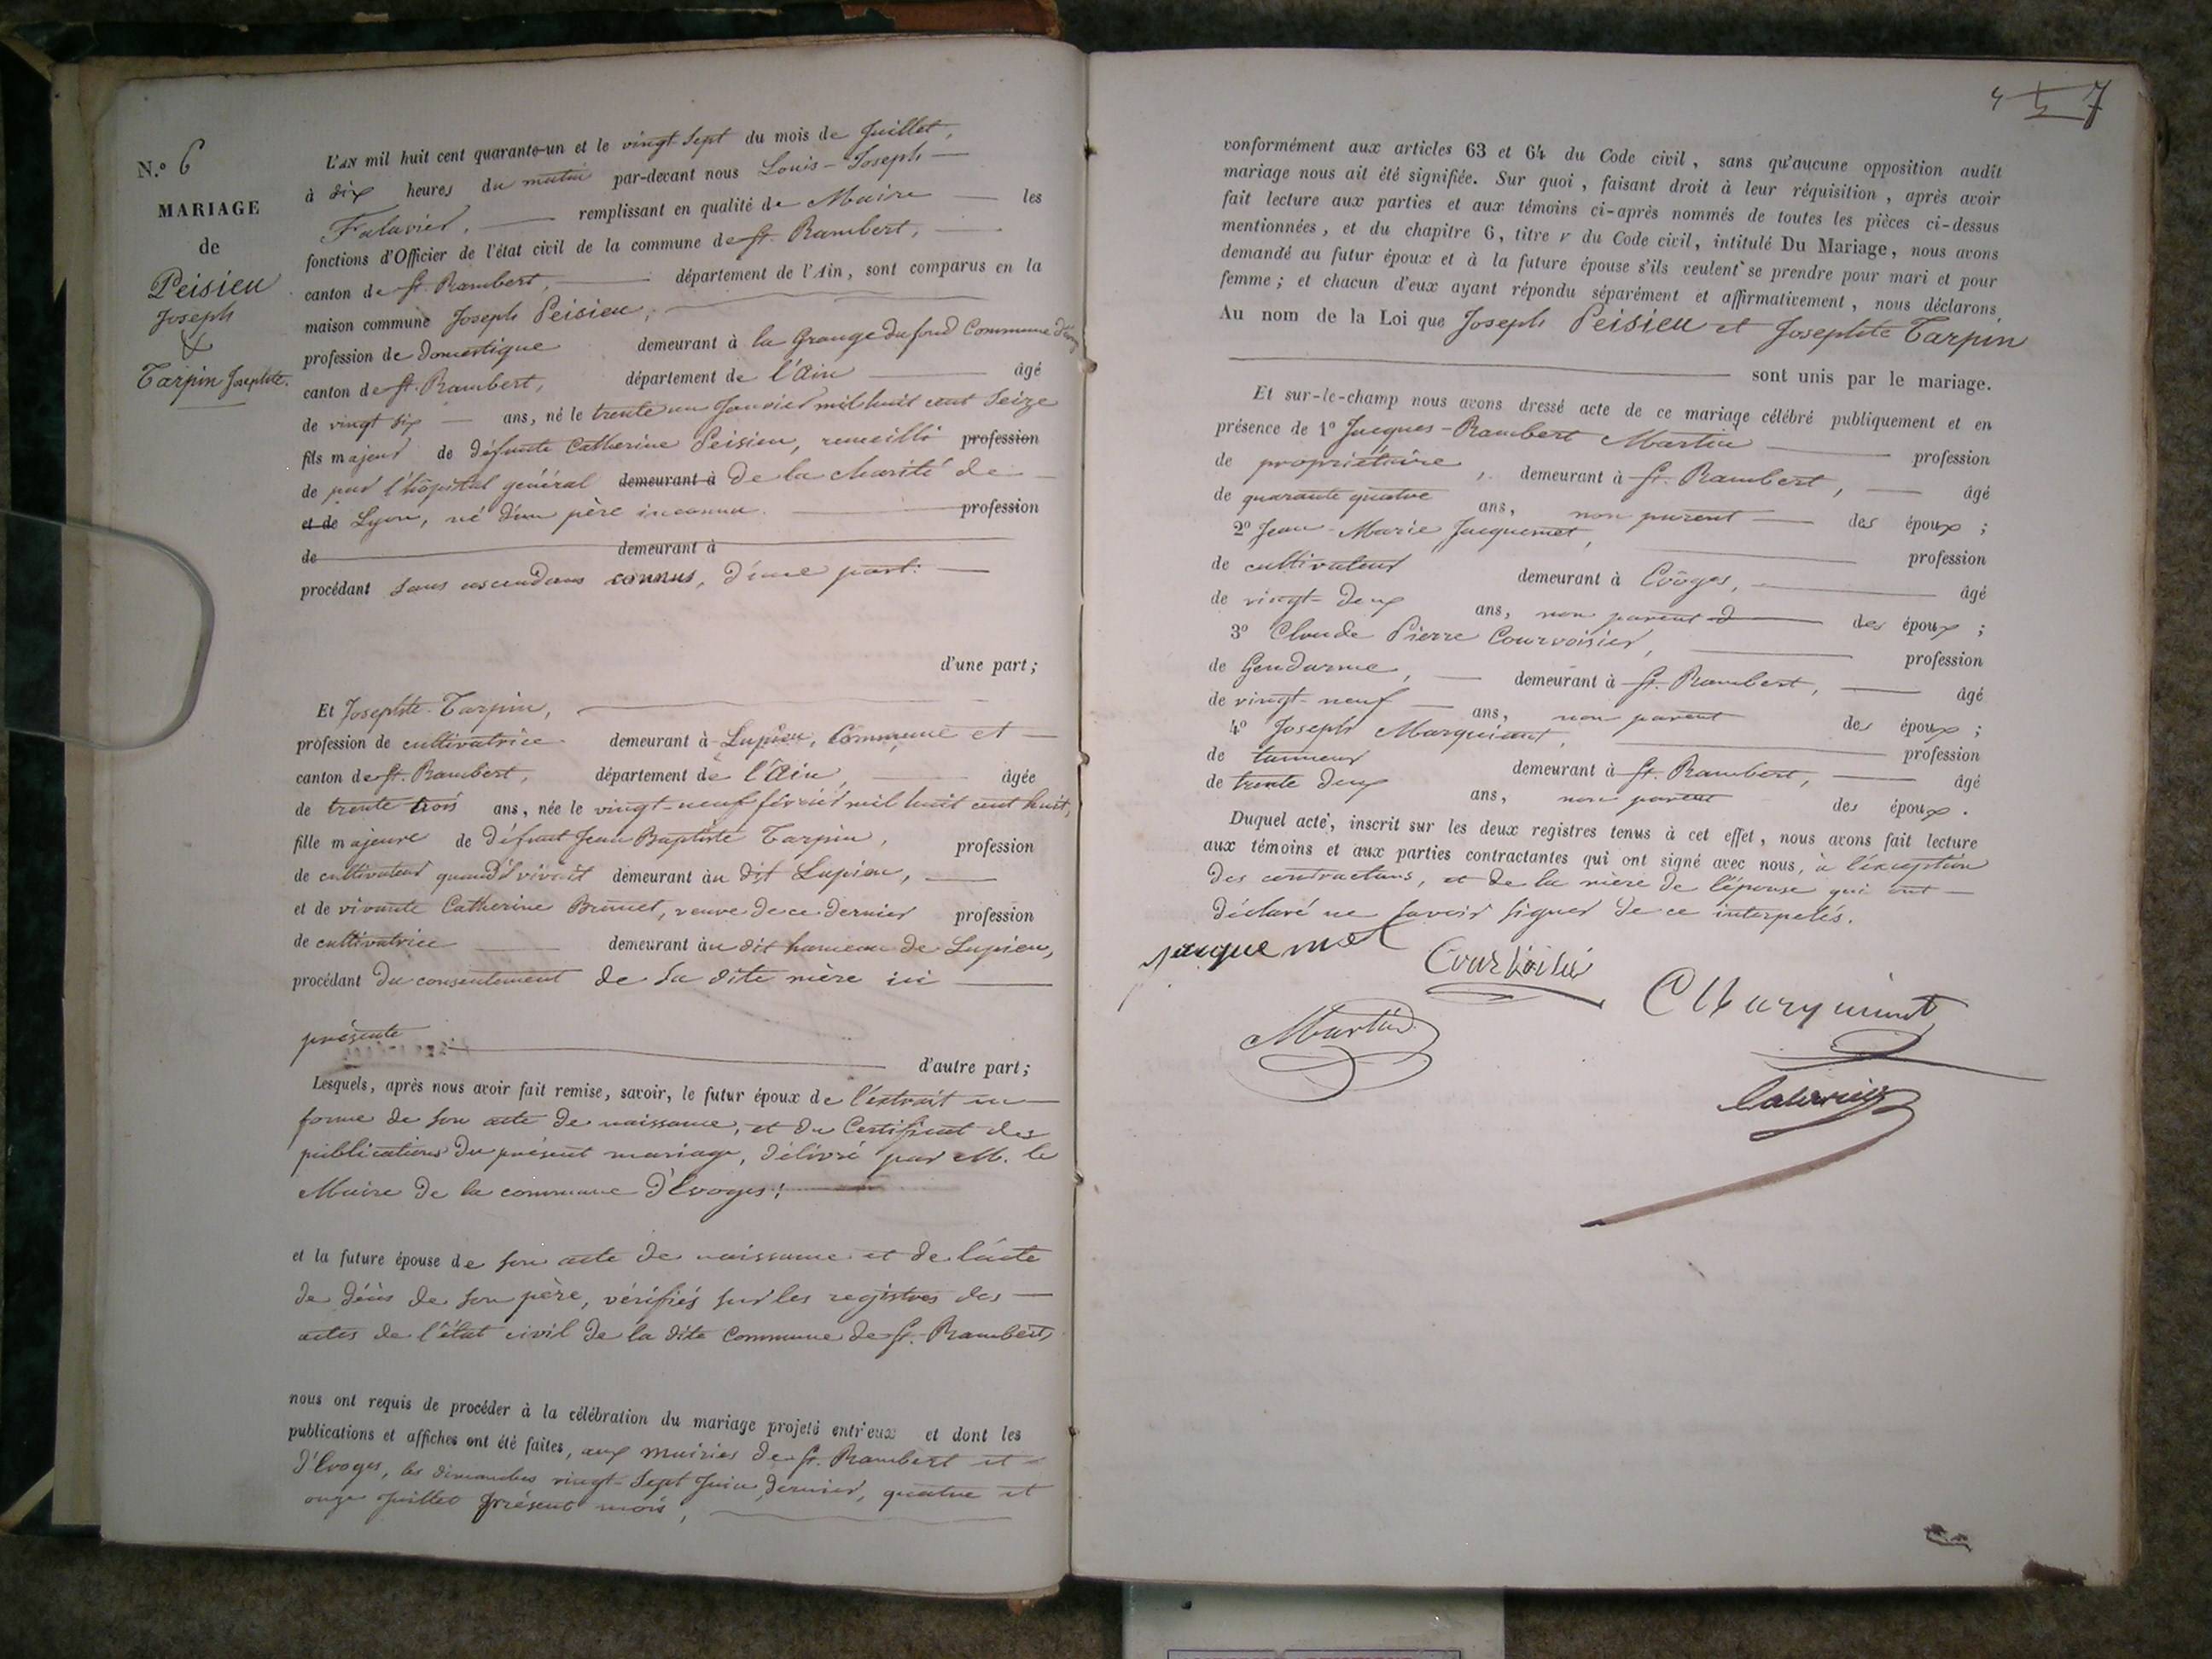 N.° 6
MARIAGE
de
Peisieu
Joseph
&
Tarpin Josephte.
L'AN mil huit cent quarante-un et le vingt-sept du mois de Juillet,
à dix heures du matin par-devant nous Louis-Joseph
Falavier, remplissant en qualité de Maire les
fonctions d'Officier de l'état civil de la commune de St. Rambert,
canton de St. Rambert, département de l'Ain, sont comparus en la
maison commune Joseph Peisieu,
profession de domestique demeurant à la Grange du fond Commune
canton de St. Rambert, département de l'Ain âgé
de vingt six ans, né le trente un Janvier mil huit cent seize
fils majeur de défunte Catherine Peisieu, recueilli profession
de par l'hôpital général demeurant à de la charité de
et de Lyon, né d'un père inconnu. profession
de demeurant à
procédant sans ascendans connus, d'une part.
d'une part;
Et Josephte Tarpin,
profession de cultivatrice demeurant à Lupieu, Commune et
canton de St. Rambert, département de l'Ain, âgée
de trente trois ans, née le vingt-neuf février mil huit cent huit,
fille majeure de défunt Jean Baptiste Tarpin, profession
de cultivateur quand il vivait demeurant au dit Lupieu,
et de vivante Catherine Brunet, veuve de ce dernier profession
de cultivatrice demeurant au dit hameau de Lupieu,
procédant du consentement de sa dite mère ici
présente
d'autre part;
Lesquels, après nous avoir fait remise, savoir, le futur époux de l'extrait en
forme de son acte de naissance, et du Certificat des
publications du présent mariage, délivré par M. le
Maire de la commune d'Evoges;
et la future épouse de son acte de naissance et de l'acte
de décès de son père, vérifiés sur les registres des
actes de l'état civil de la dite Commune de St. Rambert,
nous ont requis de procéder à la célébration du mariage projeté entr'eux et dont les
publications et affiches ont été faites, aux mairies de St. Rambert et
d'Evoges, les dimanches vingt-sept Juin dernier, quatre et
onze Juillet présent mois,
7
conformément aux articles 63 et 64 du Code civil, sans qu'aucune opposition audit
mariage nous ait été signifiée. Sur quoi, faisant droit à leur réquisition, après avoir
fait lecture aux parties et aux témoins ci-après nommés de toutes les pièces ci-dessus
mentionnées, et du chapitre 6, titre v du Code civil, intitulé Du Mariage, nous avons
demandé au futur époux et à la future épouse s'ils veulent se prendre pour mari et pour
femme; et chacun d'eux ayant répondu séparément et affirmativement, nous déclarons
Au nom de la Loi que Joseph Peisieu et Josephte Tarpin
sont unis par le mariage.
Et sur-le-champ nous avons dressé acte de ce mariage célébré publiquement et en
présence de 1° Jacques-Rambert Martin profession
de propriétaire, demeurant à St. Rambert, âgé
de quarante quatre ans, non parent des époux;
2° Jean-Marie Jacquemet, profession
de cultivateur demeurant à Evoges, âgé
de vingt-deux ans, non parent des époux;
3° Claude Pierre Courvoisier, profession
de Gendarme, demeurant à St. Rambert, âgé
de vingt-neuf ans, non parent des époux;
4° Joseph Marquiant, profession
de tanneur demeurant à St. Rambert, âgé
de trente deux ans, non parent des époux.
Duquel acte, inscrit sur les deux registres tenus à cet effet, nous avons fait lecture
aux témoins et aux parties contractantes qui ont signé avec nous, à l'exception
des contractans, et de la mère de l'épouse qui ont
déclaré ne savoir signer de ce interpelés.
Jacquemet
Courvoisier
Martin